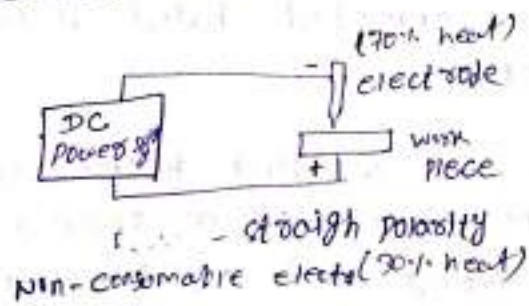 (70% heat)
-
electrode
DC
Power
work
piece
+
straigh polarity
Non-consumable (30% heat)